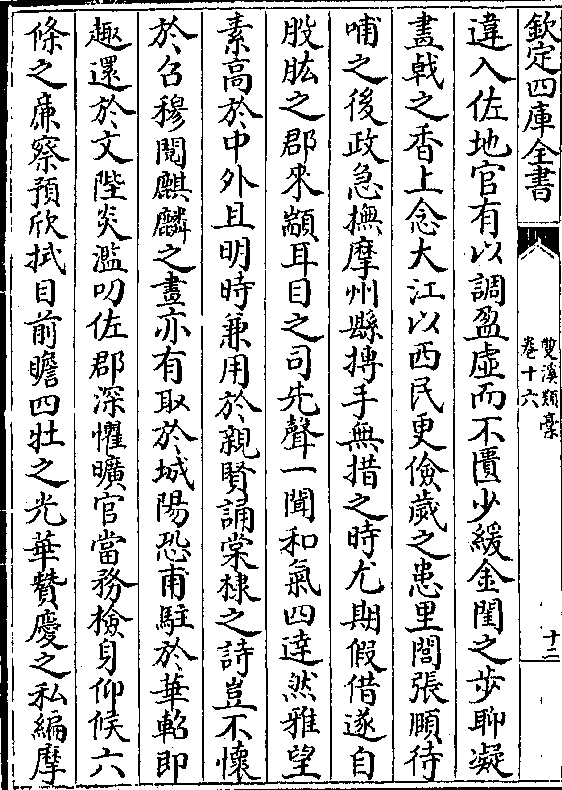 欽定四庫全書
雙溪類槀
卷十六
十二
違入佐地官有以調盈虛而不匱少緩金閨之步聊凝
畫戟之香上念大江以西民更儉歲之患里閭張頤待
哺之後政急撫摩州縣搏手無措之時尤期假借遂自
股肱之郡來顓耳目之司先聲一聞和氣四達然雅望
素高於中外且明時兼用於親賢誦棠棣之詩豈不懷
於召穆閱麒麟之畫亦有取於城陽恐甫駐於華軺即
趣還於文陛炎濫叨佐郡深懼曠官當務檢身仰候六
條之廉察預欣拭目前瞻四牡之光華贊慶之私編摩